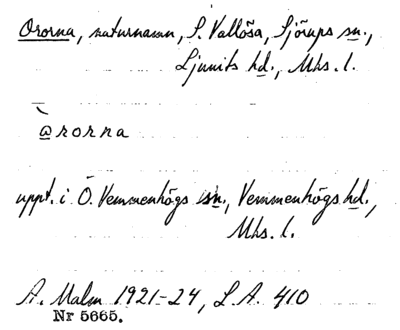 Ororna, naturnamn, S. Vallösa, Sjörups sn.,
Ljunits hd., Mhs. l.
@rorna
uppt. i Ö. Vemmenhögs sn., Vemmenhögs hd.,
Mhs. l.
A. Malm 1921-24, L.A. 410
Nr 5665.